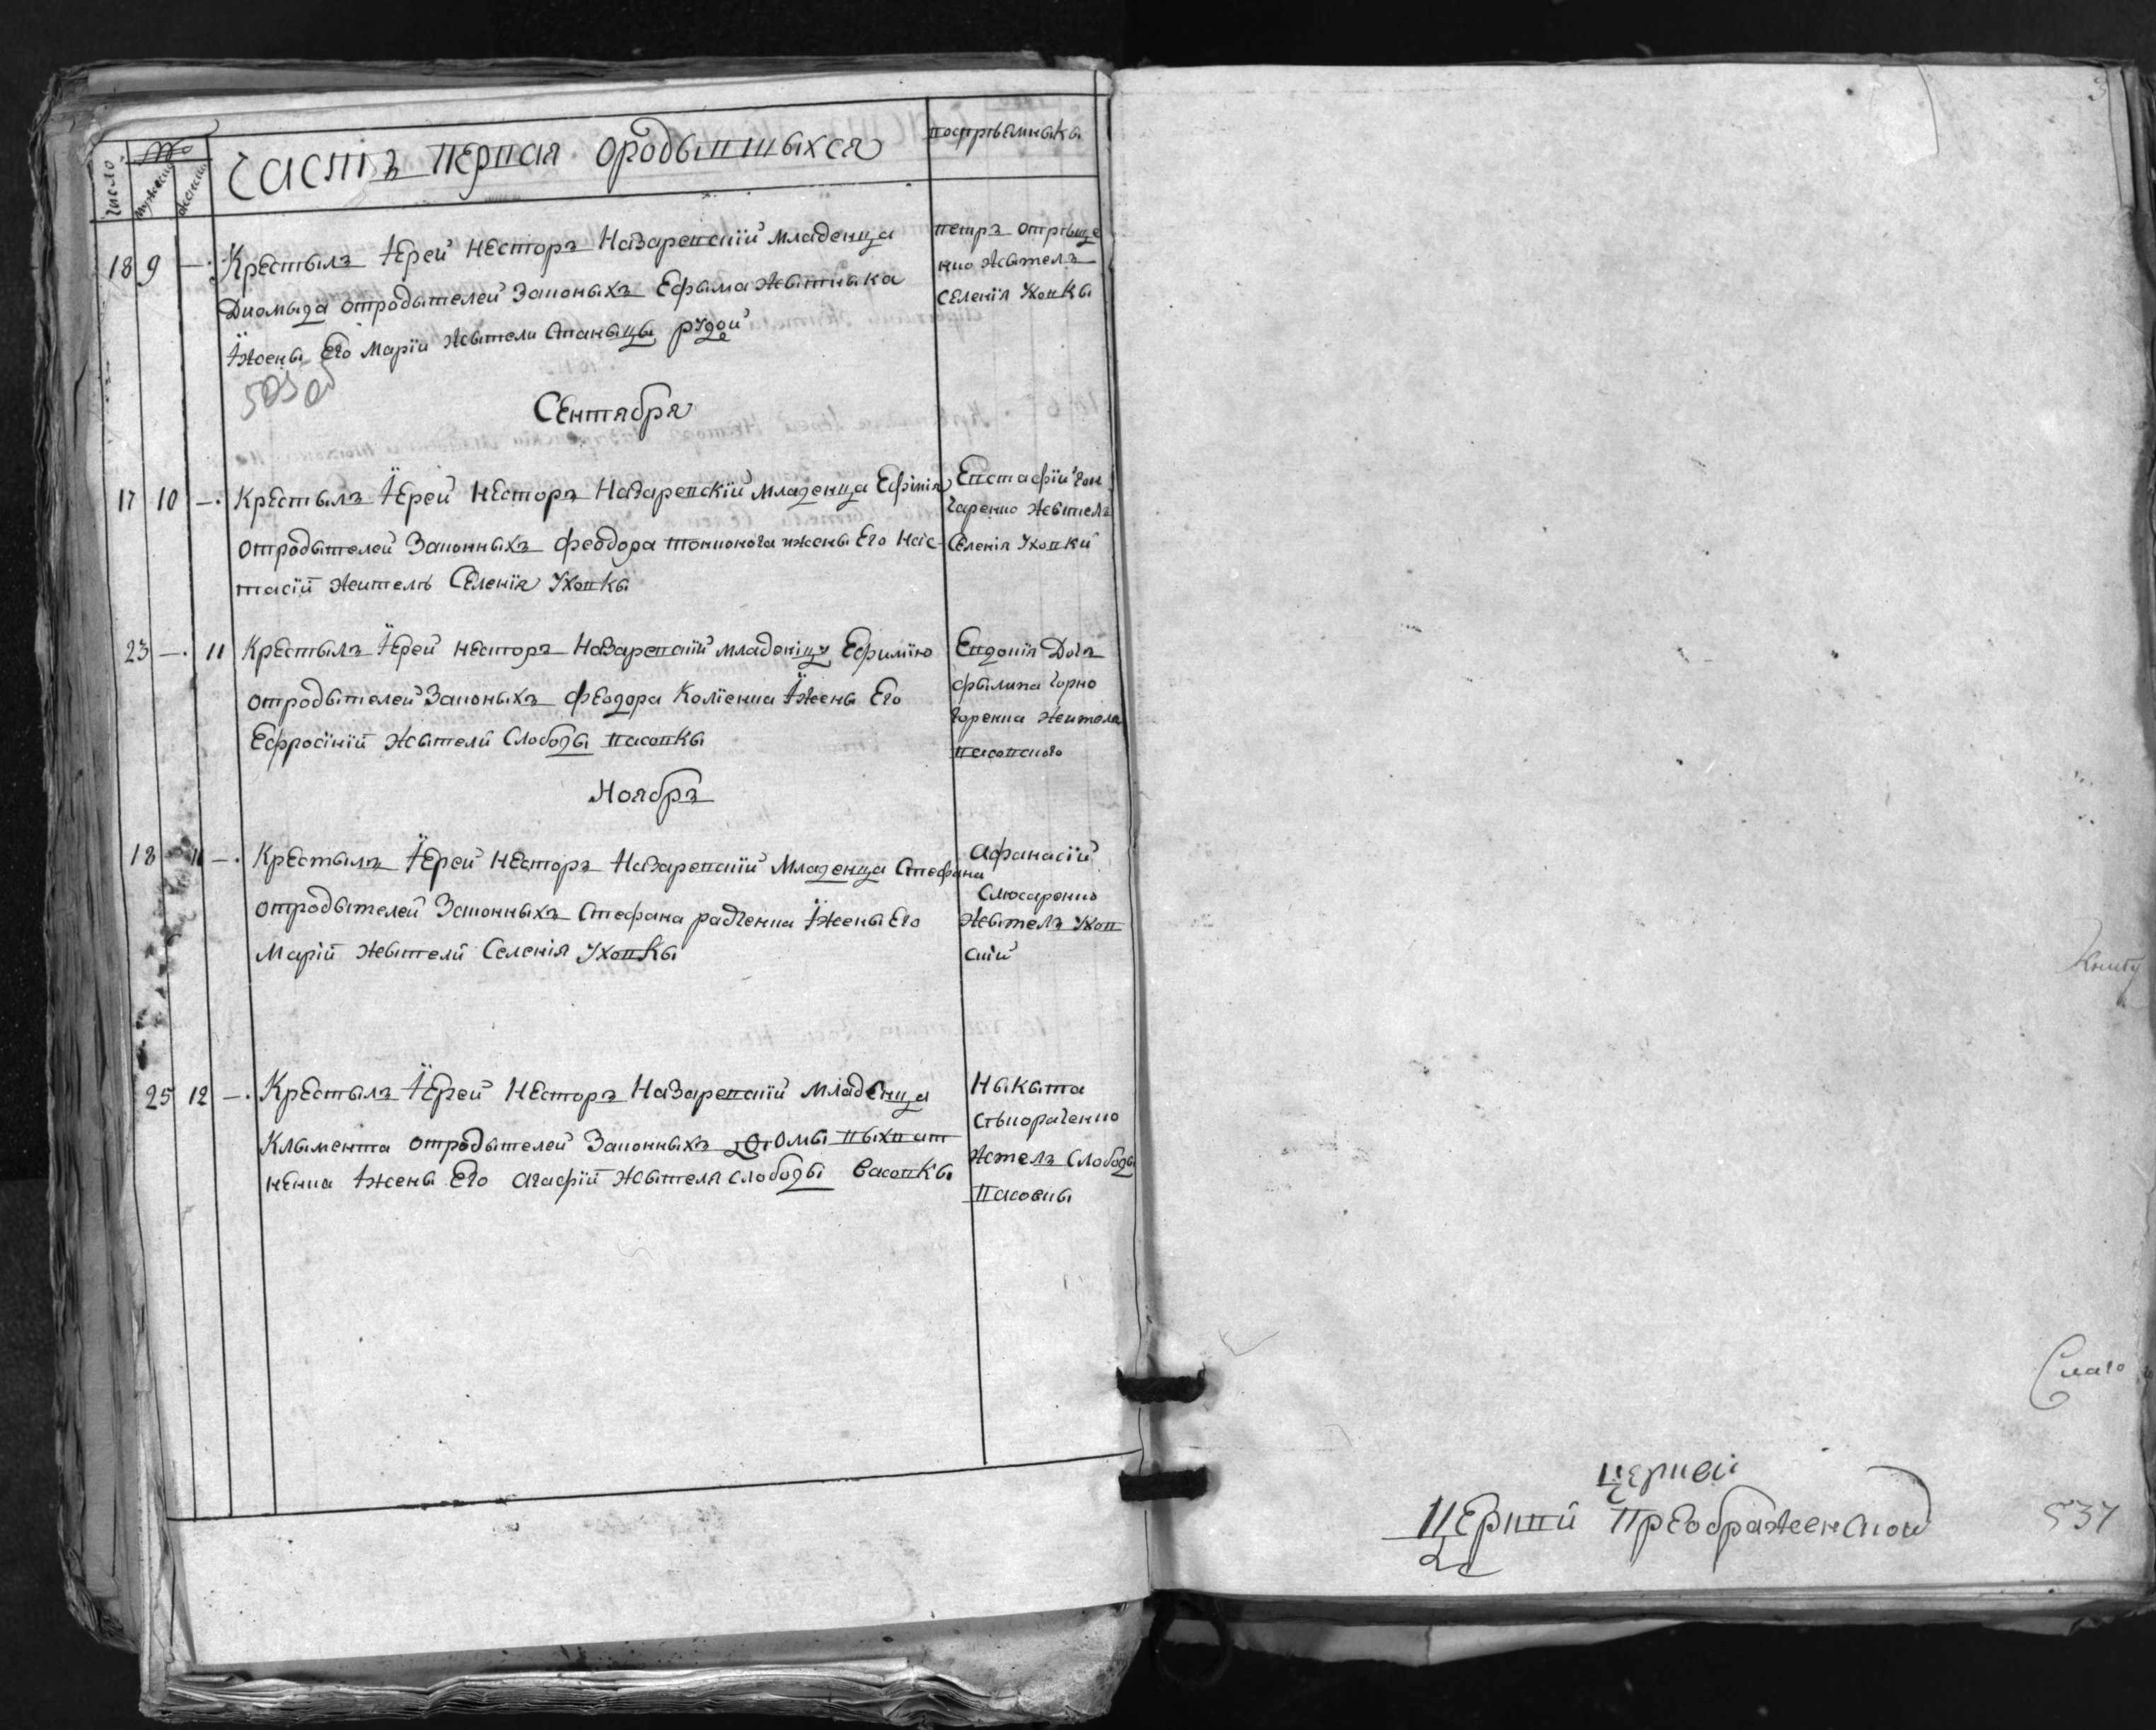 Число
№
мужеска
женска
Часть первая ородывшыхся
воспрiемныкы
18 9 —. Крестылъ Їерей Несторъ Назаревскїй младенца
Диомыда отродытелей законыхъ Ефыма Жывныка
Їжены Его Марїи жытели станыцы рудой
Петръ отрыще
нко жытелъ
селенїя Уховкы
503 об
Сентября
17 10 —. Крестылъ Їерей Несторъ Назаревскїй младенца
отродытелей Законныхъ Феодора токконога ижены Его Нас
тасїй жителъ Селенїя Уховкы
Евстафїй Гон
чаренко жытелъ
Селенїя Уховки
23 —. 11 Крестылъ Їерей Несторъ Назаревскїй младеницу Ефимїю
отродытелей Законыхъ Феодора Колїенка Їжены Его
Ефросїнїй жытелй Слободы Васовкы
Евдокїя Дочъ
Фылипа Горко
горенка жителя
васовского
Ноябръ
18 11 —. Крестылъ Їерей Несторъ Назаревскїй Младенца Стефана
отродытелей Законныхъ Стефана радченка Їжены Его
Марїй жытелй Селенїя Уховкы
Афанасїй
Слюсаренко
жытелъ Ухов
скїй
25 12 —. Крестылъ Їерей Несторъ Назаревскїй младенца
Клымента отродытелей Законныхъ Ѳомы выхват
ненка Їжены Его Агафїй жытеля слободы Васовкы
Ныкыта
сьпораченко
жтелъ Слободы
Васовкы
Книгу
церкви
Церквй Преображенской
537